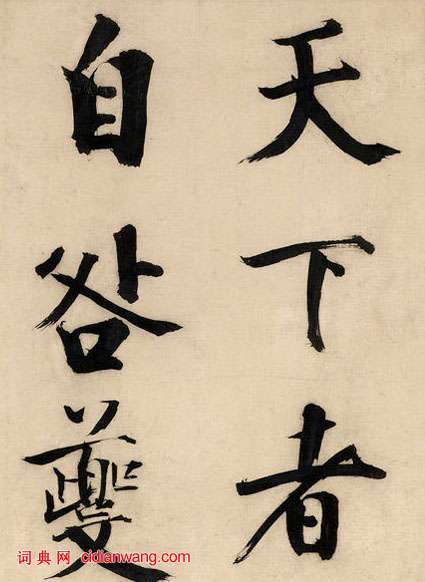 天下者
自咎夔
词典网 cidianwang.com